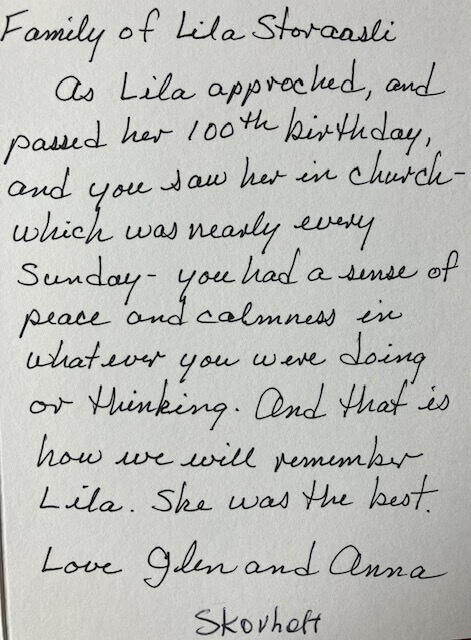 Family of Lila Storaasli
As Lila approched, and
passed her 100th birthday,
and you saw her in church-
which was nearly every
Sunday- you had a sense of
peace and calmness in
whatever you were doing
or thinking. And that is
how we will remember
Lila. She was the best.
Love Glen and Anna
Skovholt